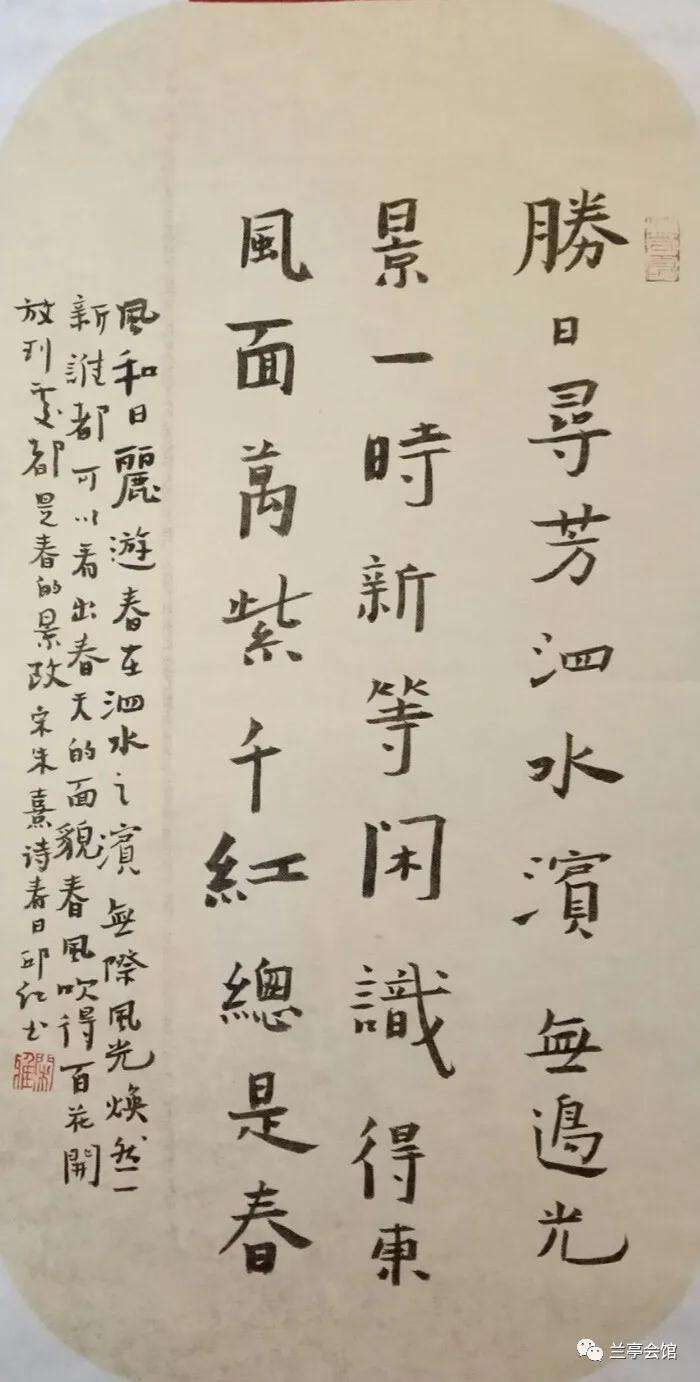 勝日尋芳泗水濱無邉光
景一時新等闲識得東
風面萬紫千紅總是春
風和日麗遊春在泗水之濱無際風光焕然一
新誰都可以看出春天的面貌春風吹得百花開
放到處都是春的景致宋朱熹诗春日邱红书
兰亭会馆